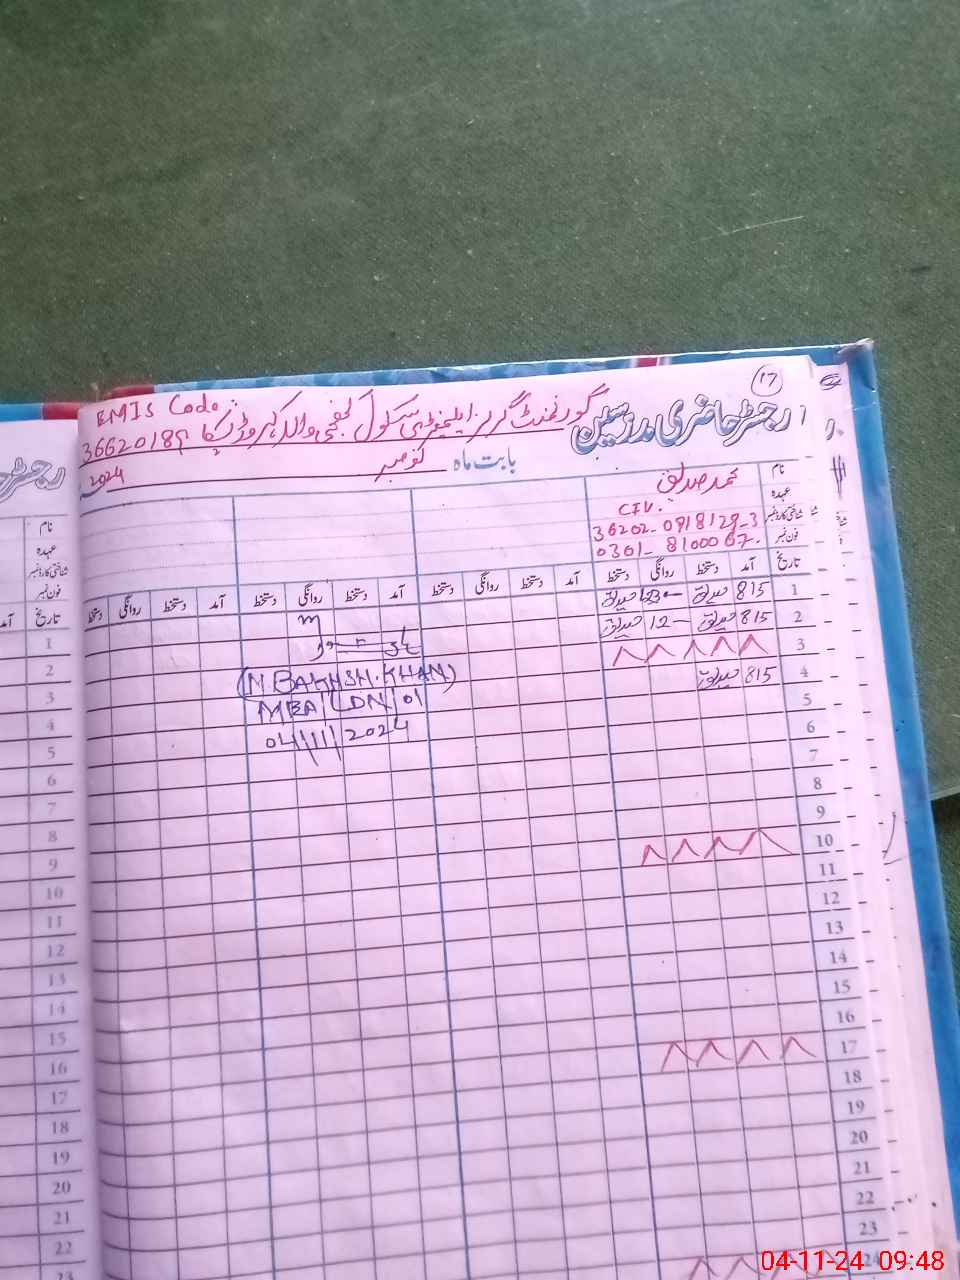 17
رجسٹر حاضری مدرسین
گورنمنٹ گرلز ایلیمنٹری سکول
EMIS Code:
36620189
بابت ماہ نومبر
2024
نام محمد صدیق
عہدہ CIV.
شناختی کارڈ نمبر 36202-0918129-3
فون نمبر 0301-8100067.
تاریخ آمد دستخط روانگی دستخط آمد دستخط روانگی دستخط آمد دستخط روانگی دستخط آمد دستخط روانگی دستخط
1 815 صدیق صدیق
2 815 صدیق 12 صدیق
3
4 815 صدیق
(N. BAKHSH. KHAN)
MEA LDN 01
04/11/2024
5
6
7
8
9
10
11
12
13
14
15
16
17
18
19
20
21
22
23
24
رجسٹر
نام
عہدہ
شناختی کارڈ نمبر
فون نمبر
تاریخ آمد
1
2
3
4
5
6
7
8
9
10
11
12
13
14
15
16
17
18
19
20
21
22
23
04-11-24 09:48